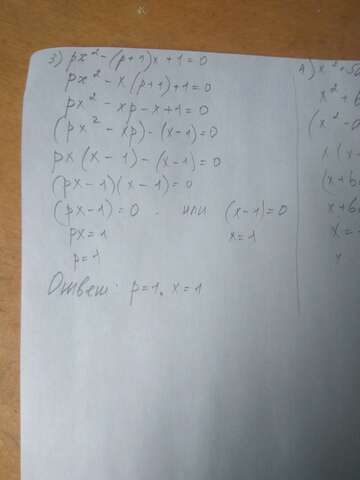 3) px² - (p+1)x + 1 = 0
px² - x(p+1) + 1 = 0
px² - xp - x + 1 = 0
(px² - xp) - (x-1) = 0
px(x-1) - (x-1) = 0
(px-1)(x-1) = 0
(px-1) = 0 . или (x-1) = 0
px = 1 x = 1
p = 1
Ответ: p=1, x=1
4) x² + 5
x² + 6
(x² - a
x(x -
(x + 6
x + 6
x = -
x